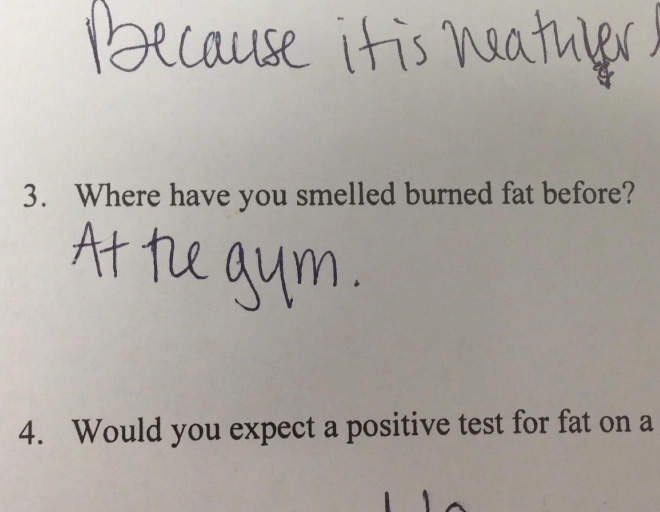 Because it is neather
3. Where have you smelled burned fat before?
At the gym.
4. Would you expect a positive test for fat on a